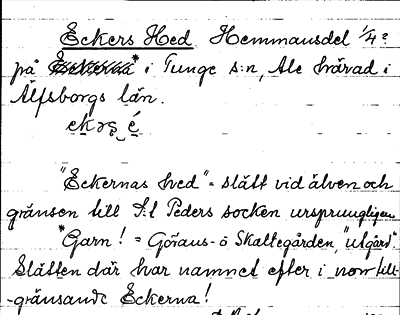 Eckers Hed Hemmansdel 1/4?
på * i Tunge s:n, Ale härad i
Älfsborgs län.
"Eckernas hed" = slätt vid älven och
gränsen till S:t Peders socken ursprungligen
*Garn! = Götaus-ö Skattegården, "utgård".
Slätten där har namnet efter i norr till-
-gränsande Eckerna!